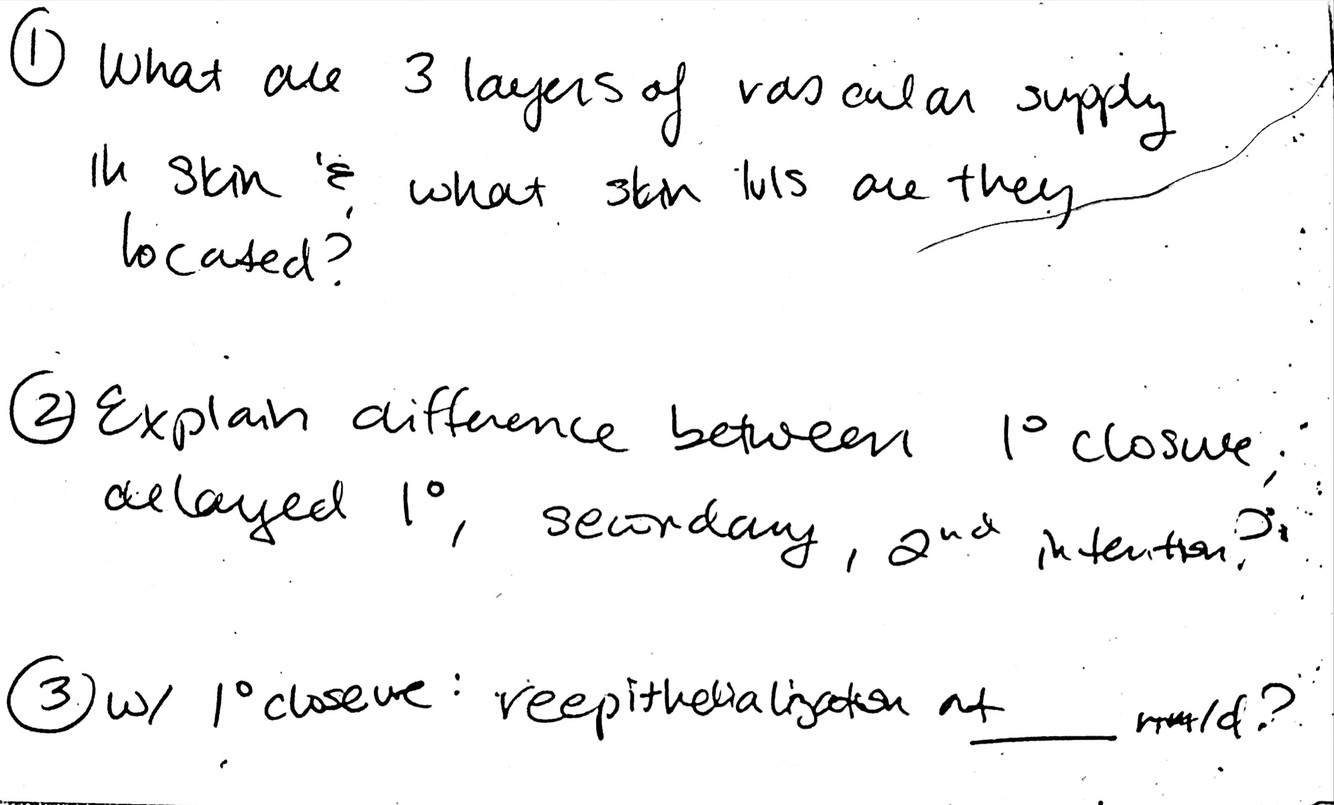 ① What are 3 layers of vascular supply
in skin & what skin lvls are they
located?
② Explain difference between 1° closure,
delayed 1°, secondary, 2nd intention?
③ w/ 1° closure: reepithelialization at ____ mm/d?